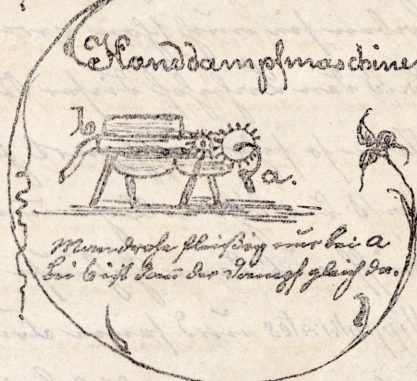 Handdampfmaschine
b
a.
Man drehe fleißig nur bei a
bei b ist dann der Dampf gleich da.